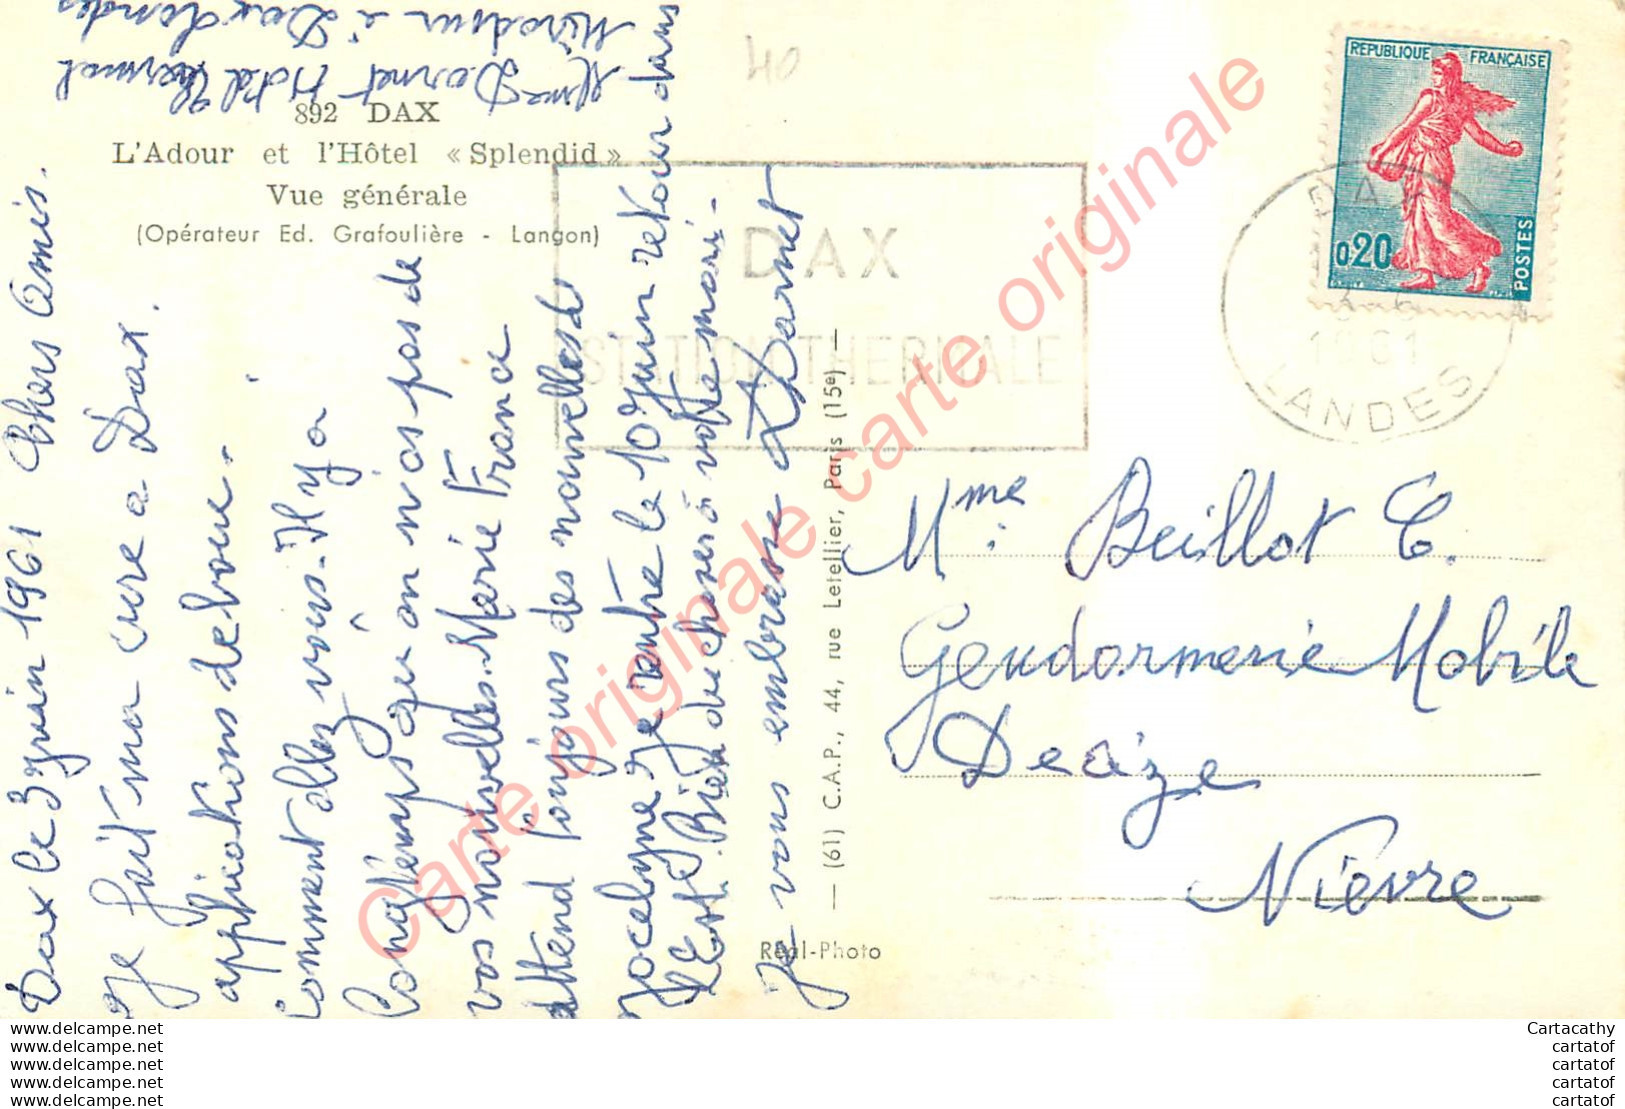 892 DAX
L'Adour et l'Hôtel « Splendid »
Vue générale
(Opérateur Ed. Grafoulière - Langon)
Dax le 3 juin 1961 Chers Amis.
Je fait ma cure a Dax.
applications de boue.
Comment allez vous. Il y a
longtemps qu'on n'as pas de
vos nouvelles. Marie France
attend toujours des nouvelles de
Jocelyne je rentre le 10 juin retour dans
l'Est. Bien du choses à votre mari -
Je vous embrasse Darnet
Mme Darnet Hotel Thermal
à Dax Landes
40
DAX
STATION THERMALE
REPUBLIQUE FRANÇAISE
0,20
POSTES
DAX
1961
LANDES
Mme Beillot C.
Gendarmerie Mobile
Decize
Nièvre
— (61) C.A.P., 44, rue Letellier, Paris (15e) —
Réal-Photo
Carte originale carte originale carte originale
www.delcampe.net
www.delcampe.net
www.delcampe.net
www.delcampe.net
www.delcampe.net
Cartacathy
cartatof
cartatof
cartatof
cartatof